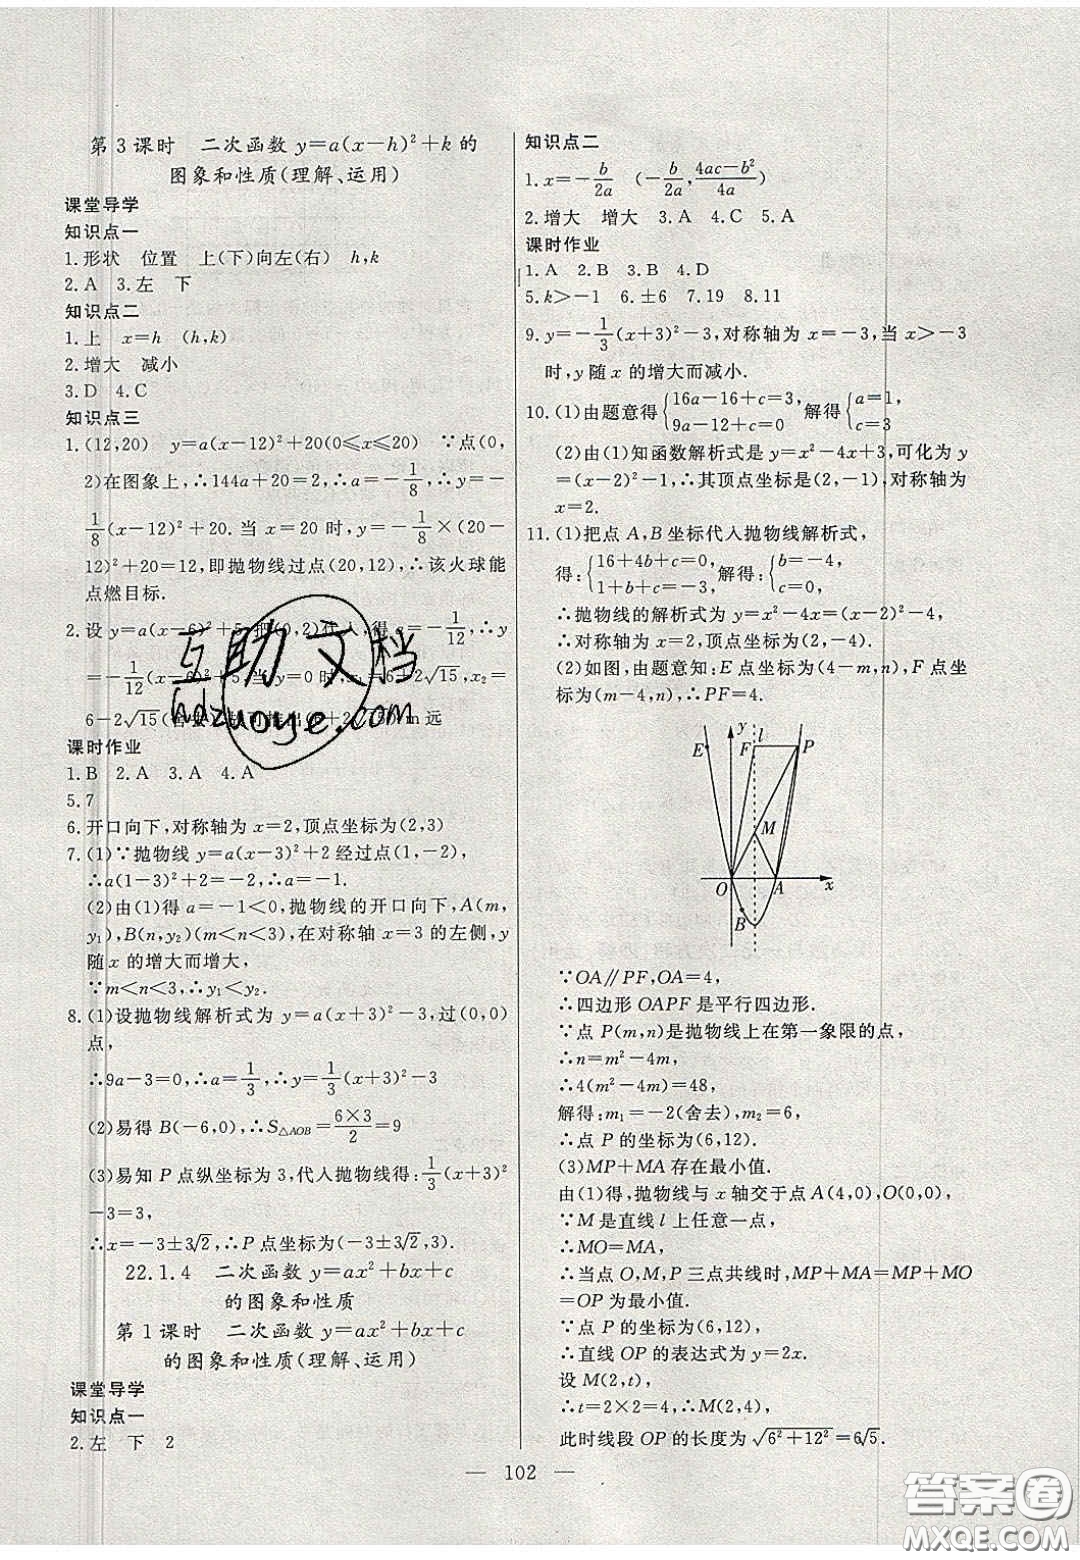 第3课时　二次函数 y=a(x-h)²+k 的
图象和性质(理解、运用)
课堂导学
知识点一
1.形状　位置　上(下)向左(右)　h,k
2.A　3.左　下
知识点二
1.上　x=h　(h,k)
2.增大　减小
3.D　4.C
知识点三
1.(12,20)　y=a(x-12)²+20(0≤x≤20)　∵点(0,
2)在图象上,∴144a+20=2,∴a=-1/8,∴y=-
1/8(x-12)²+20.当 x=20 时,y=-1/8×(20-
12)²+20=12,即抛物线过点(20,12),∴该火球能
点燃目标.
2.设 y=a(x-6)²+5,把(0,2)代入,得 a=-1/12,∴y
=-1/12(x-6)²+5,当 y=0 时,x₁=6+2√15,x₂=
6-2√15(舍去) m 远
课时作业
1.B　2.A　3.A　4.A
5.7
6.开口向下,对称轴为 x=2,顶点坐标为(2,3)
7.(1)∵抛物线 y=a(x-3)²+2 经过点(1,-2),
∴a(1-3)²+2=-2,∴a=-1.
(2)由(1)得 a=-1<0,抛物线的开口向下,A(m,
y₁),B(n,y₂)(m<n<3),在对称轴 x=3 的左侧,y
随 x 的增大而增大,
∵m<n<3,∴y₁<y₂.
8.(1)设抛物线解析式为 y=a(x+3)²-3,过(0,0)
点,
∴9a-3=0,∴a=1/3,∴y=1/3(x+3)²-3
(2)易得 B(-6,0),∴S△AOB=6×3/2=9
(3)易知 P 点纵坐标为 3,代入抛物线得:1/3(x+3)²
-3=3,
∴x=-3±3√2,∴P 点坐标为(-3±3√2,3).
22.1.4　二次函数 y=ax²+bx+c
的图象和性质
第1课时　二次函数 y=ax²+bx+c
的图象和性质(理解、运用)
课堂导学
知识点一
2.左　下　2
知识点二
1.x=-b/2a　(-b/2a,4ac-b²/4a)
2.增大　增大　3.A　4.C　5.A
课时作业
1.A　2.B　3.B　4.D
5.k>-1　6.±6　7.19　8.11
9.y=-1/3(x+3)²-3,对称轴为 x=-3,当 x>-3
时,y 随 x 的增大而减小.
10.(1)由题意得{16a-16+c=3,　9a-12+c=0　解得{a=1,　c=3
(2)由(1)知函数解析式是 y=x²-4x+3,可化为 y
=(x-2)²-1,∴其顶点坐标是(2,-1),对称轴为
x=2.
11.(1)把点 A,B 坐标代入抛物线解析式,
得:{16+4b+c=0,　1+b+c=-3,　解得:{b=-4,　c=0.
∴抛物线的解析式为 y=x²-4x=(x-2)²-4,
∴对称轴为 x=2,顶点坐标为(2,-4).
(2)如图,由题意知:E 点坐标为(4-m,n),F 点坐
标为(m-4,n),∴PF=4.
y
E　F　l　P
M
O　A　x
B
∵OA∥PF,OA=4,
∴四边形 OAPF 是平行四边形.
∵点 P(m,n)是抛物线上在第一象限的点,
∴n=m²-4m,
∴4(m²-4m)=48,
解得:m₁=-2(舍去),m₂=6,
∴点 P 的坐标为(6,12).
(3)MP+MA 存在最小值.
由(1)得,抛物线与 x 轴交于点 A(4,0),O(0,0),
∵M 是直线 l 上任意一点,
∴MO=MA,
∴当点 O,M,P 三点共线时,MP+MA=MP+MO
=OP 为最小值.
∵点 P 的坐标为(6,12),
∴直线 OP 的表达式为 y=2x.
设 M(2,t),
∴t=2×2=4,∴M(2,4),
此时线段 OP 的长度为 √(6²+12²)=6√5.
— 102 —
互助文档
hdzuoye.com
答案圈
MXQE.COM